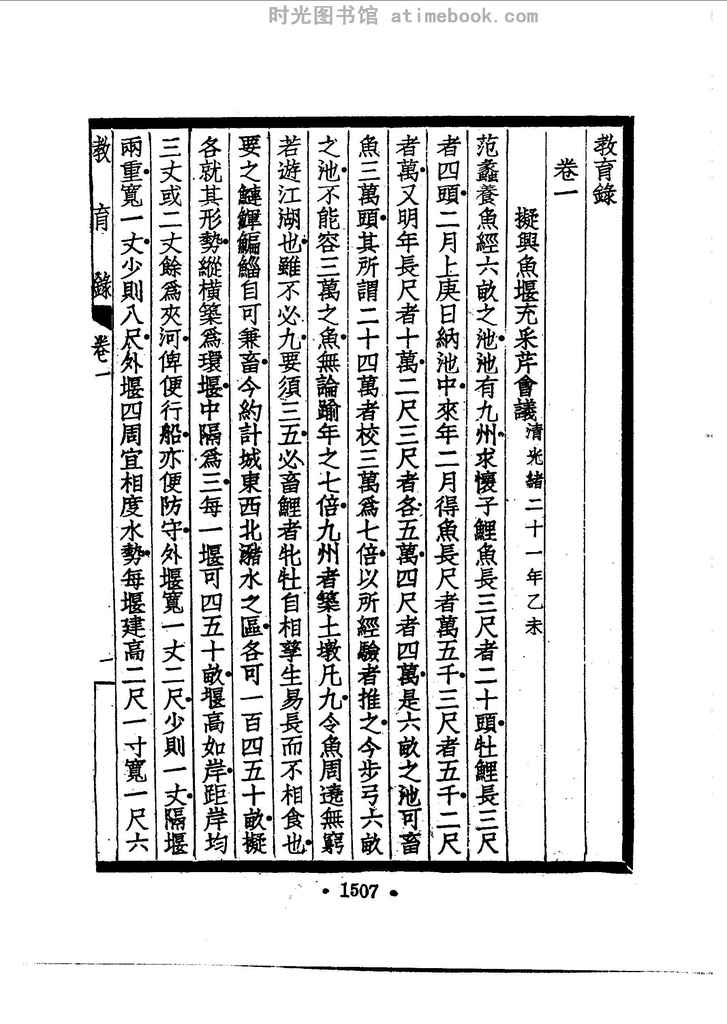 时光图书馆 atimebook.com
教育錄
卷一
擬興魚堰充采芹會議清光緒二十一年乙未
范蠡養魚經六畝之池池有九州求懷子鯉魚長三尺者二十頭牡鯉長三尺
者四頭二月上庚日納池中來年二月得魚長尺者萬五千三尺者五千二尺
者萬又明年長尺者十萬二尺三尺者各五萬四尺者四萬是六畝之池可畜
魚三萬頭其所謂二十四萬者校三萬爲七倍以所經驗者推之今步弓六畝
之池不能容三萬之魚無論踰年之七倍九州者築土墩凡九令魚周遶無窮
若遊江湖也雖不必九要須三五必畜鯉者牝牡自相孳生易長而不相食也
要之鰱鯶鯿鯔自可兼畜今約計城東西北瀦水之區各可一百四五十畝擬
各就其形勢縱橫築爲環堰中隔爲三每一堰可四五十畝堰高如岸距岸均
三丈或二丈餘爲夾河俾便行船亦便防守外堰寬一丈二尺少則一丈隔堰
兩重寬一丈少則八尺外堰四周宜相度水勢每堰建高二尺一寸寬一尺六
教育錄 卷一 一
• 1507 •